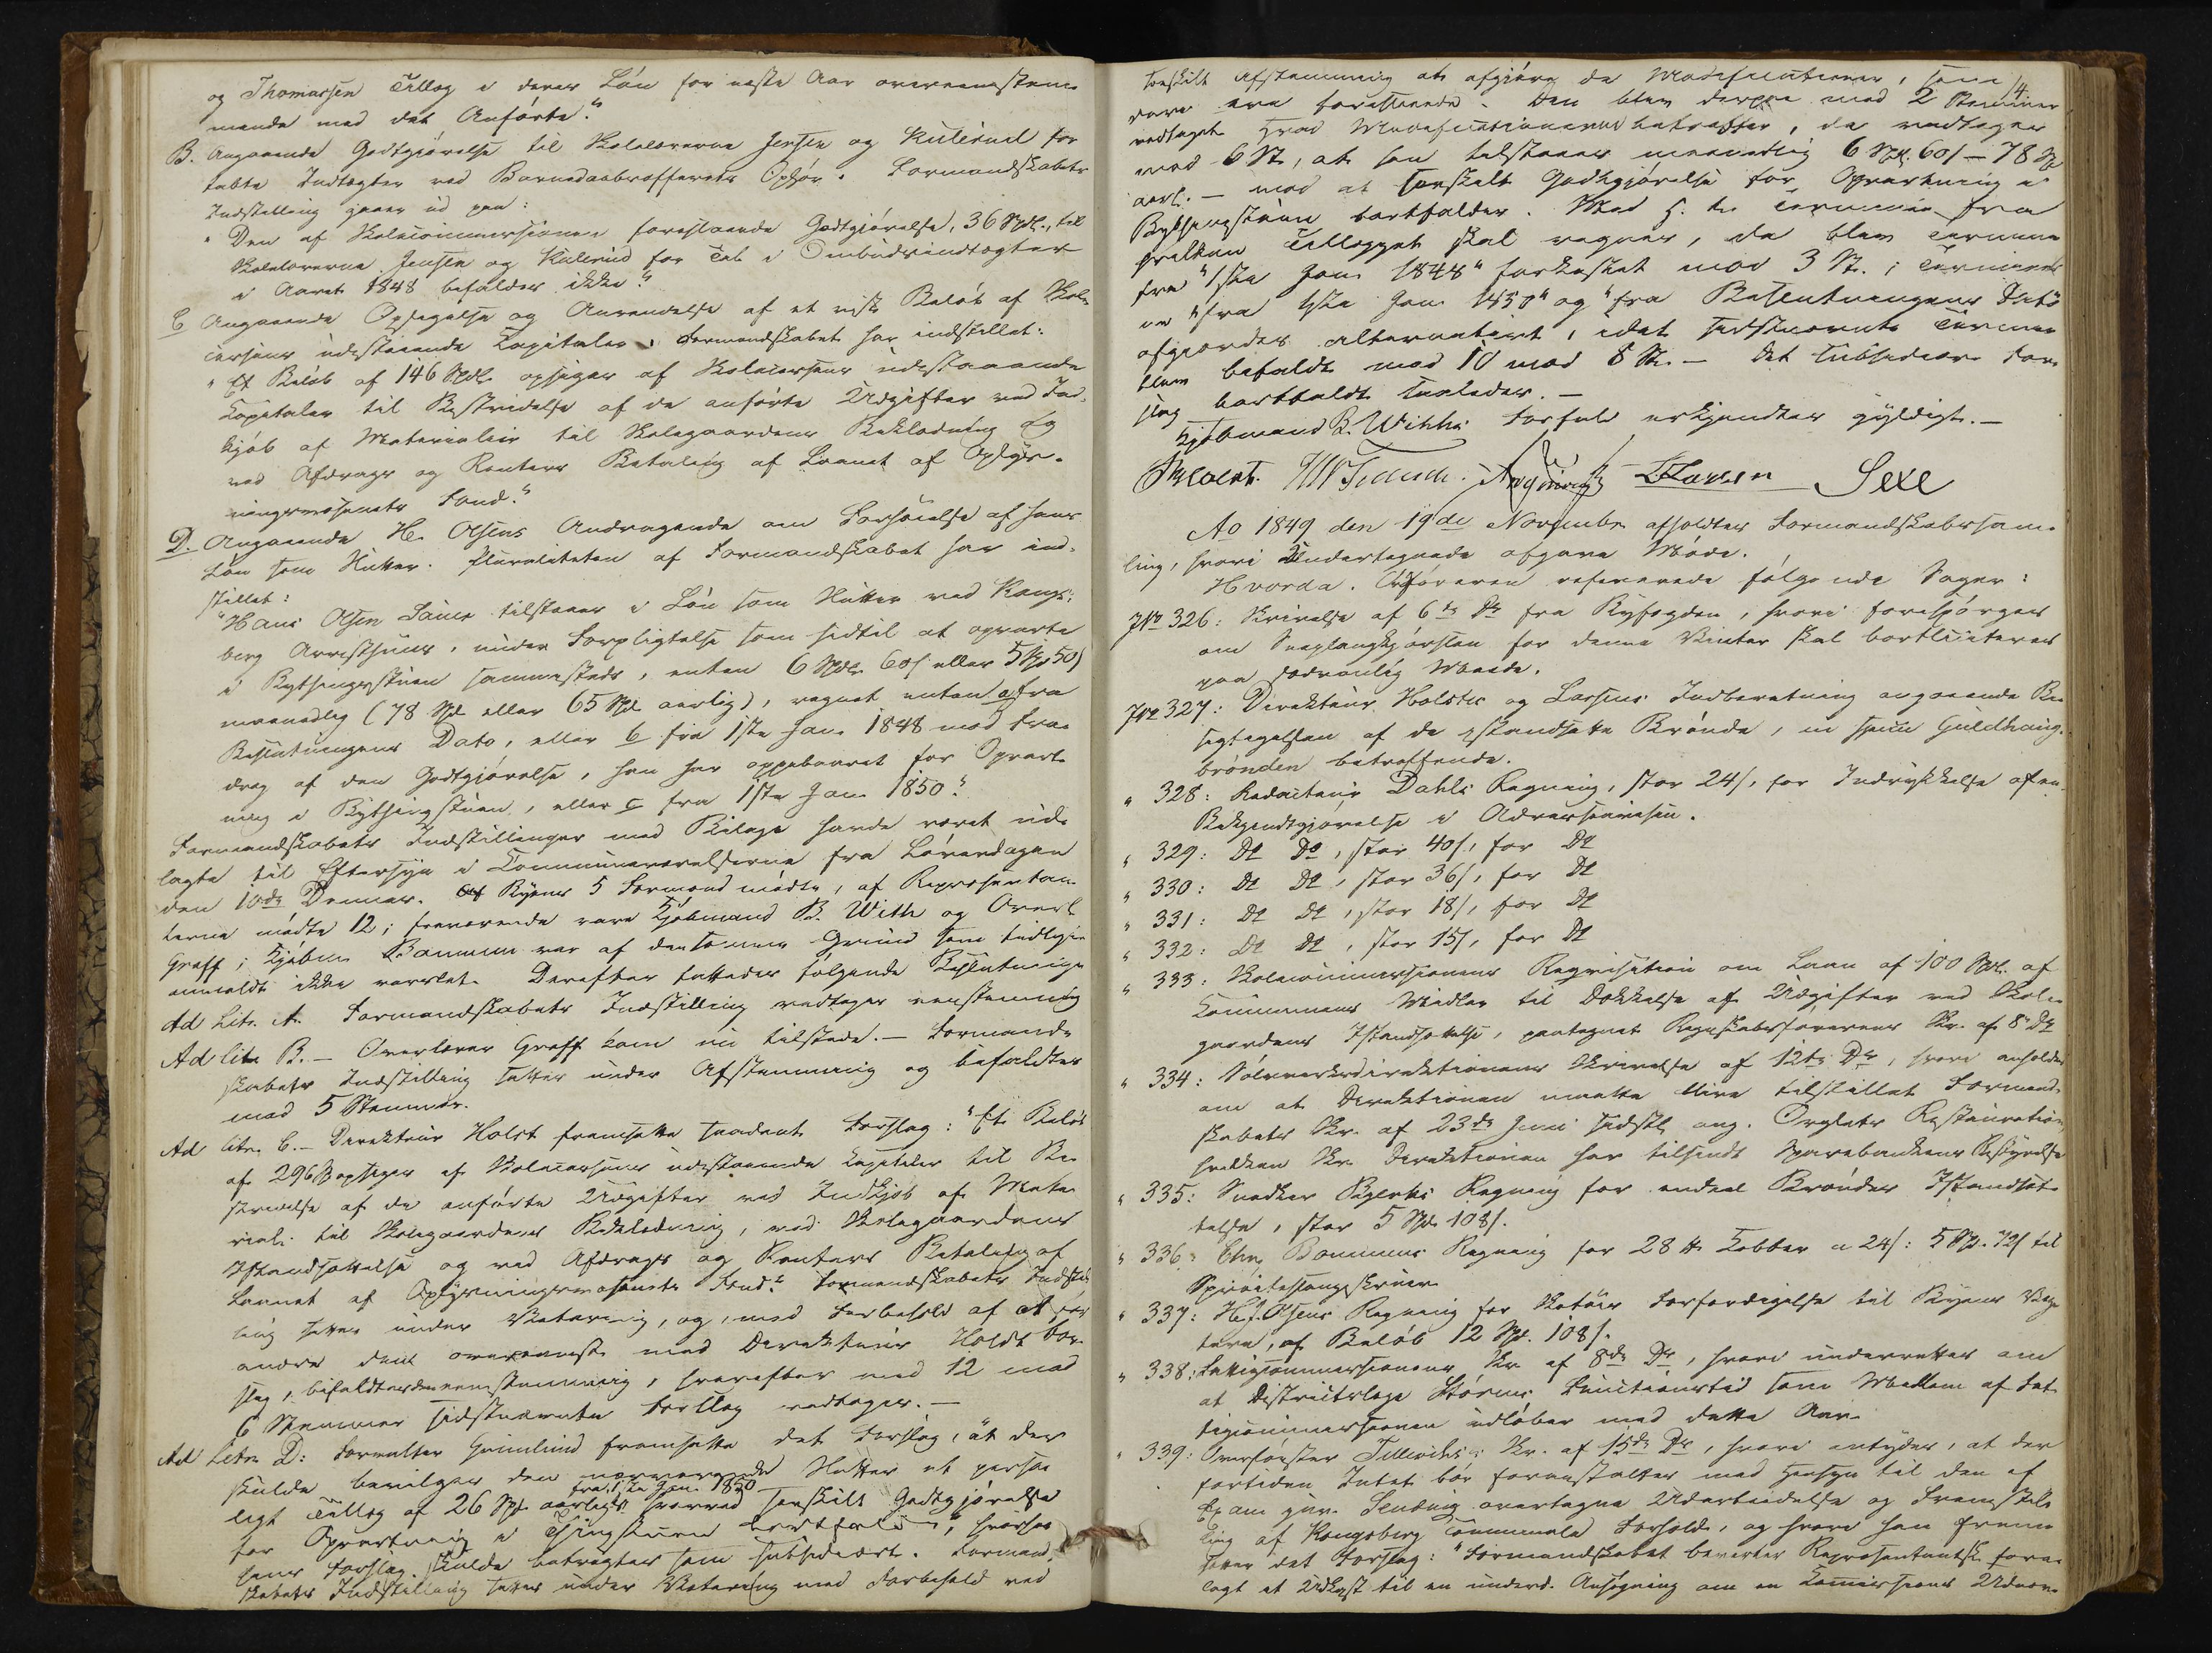 og Thomassen Tillæg i deres Løn for næste Aar overeensstem-
mende med det Anførte."
B. Angaaende Godtgjørelse til Skolelærerne Jensen og Kulerud for
tabte Indtægter ved Barnedaabsofferets Ophør. Formandskabets
Indstilling gaaer ud paa:
"Den af Skolecommissionen foreslaaede Godtgjørelse, 36 Spdl., til
Skolelærerne Jensen og Kulerud for Tab i Ombudsindtægter
i Aaret 1848 bifaldes ikke."
C Angaaende Opsigelse og Anvendelse af et vist Beløb af Skole-
cassens udestaaende Capitaler. Formandskabet har indstillet:
"Et Beløb af 146 Spdlr opsiges af Skolecassens udestaaende
Capitaler til Bestridelse af de anførte Udgifter ved Ind-
kjøb af Materialier til Skolegaardens Beklædning og
ved Afdrags og Renters Betaling af Laanet af Oplys-
ningsvæsenets Fond."
D. Angaaende H. Olsens Andragende om Forhøielse af hans
Løn som Slutter. Pluraliteten af Formandskabet har ind-
stillet:
"Hans Olsen Sause tilstaaes i Løn som Slutter ved Kongs-
berg Arresthuus, under Forpligtelse som hidtil at opvarte
i Bythingsstuen sammesteds, enten 6 Spdlr 60 s eller 5 Spd 50 s
maanedlig (78 Spd eller 65 Spd aarlig), regnet enten a fra
Beslutningens Dato, eller b fra 1ste Jan. 1848 mod Fra-
drag af den Godtgjørelse, han har oppebaaret for Opvart-
ning i Bythingstuen, eller c fra 1ste Jan. 1850."
Formandskabets Indstillinger med Bilage havde været ud-
lagte til Eftersyn i Communeværelserne fra Løverdagen
den 10de Dennes. Af Byens 5 Formænd mødte, af Repræsentan-
terne mødte 12; fraværende vare Kjøbmand B. With og Overl.
Graff; Kjøbm. Bommen var af den samme Grund som tidligere
anmeldt ikke varslet. Derefter fattedes følgende Beslutninger
Ad Litr. A. Formandskabets Indstilling vedtages eenstemmig
Ad litr. B. – Overlærer Graff kom nu tilstede. – Formand-
skabets Indstilling sattes under Afstemning og bifaldtes
med 5 Stemmer.
Ad litr. C. – Direkteur Holst fremsatte saadant Forslag: "Et Beløb
af 296 Spd opsiges af Skolecassens udestaaende Capitaler til Be-
stridelse af de anførte Udgifter ved Indkjøb af Mate-
rial. til Skolegaardens Beklædning, ved Skolegaardens
Istandsættelse og ved Afdrags og Renters Betaling af
Laanet af Oplysningsvæsenets Fond." Formandskabets Indstil-
ling sattes under Votering, og, med Forbehold af at for-
andre den overeensst. med Direkteur Holsts For-
slag, bifaldtes den eenstemmig, hvorefter med 12 mod
6 Stemmer sidstnævnte Forslag vedtages. –
Ad Litr. D: Forvalter Grimlund fremsatte det Forslag, "at der
skulde bevilges den nærværende Slutter et person-
fra 1ste Jan. 1850
ligt Tillæg af 26 Spd aarligt, hvorved særskilt Godtgjørelse
for Opvartning i Thingstuen bortfalder", hvorhos
hans Forslag skulde betragtes som subsidiært. Formand-
skabets Indstilling sattes under Votering med Forbehold ved
14.
særskilt Afstemning at afgjøre de Modificationer, som
vare foreslaaede. Den blev derpaa med 2 Stemmer
vedtaget. Hvad Modificationerne betræffer, da vedtages
med 6 St., at han tilstaaes maanedlig 6 Spd. 60 s – 78 Spd
aarl. – mod at særskilt Godtgjørelse for Opvartning i
Bythingstuen bortfalder. Med H. t. Terminen fra
hvilken Tillægget skal regnes, da blev Terminen
fra "1ste Jan. 1848" forkastet mod 3 St.; Terminen
"fra 1ste Jan. 1850" og "fra Beslutningens Dato"
afgjordes alternativt, idet sidstnævnte Termin
blev bifaldt med 10 mod 8 St. – Det subsidiære For-
slag bortfaldt saaledes. –
Kjøbmand B. Withs Forfald erkjendtes gyldigt. –
Sexe
Ao 1849 den 19de November afholdtes Formandskabssam-
ling, hvori Undertegnede afgave Møde.
Hvorda. Ordføreren refererede følgende Sager:
No 326: Skrivelse af 6te Ds fra Byfogden, hvori forespørges
om Sneplougkjørslen for denne Vinter skal bortliciteres
paa sædvanlig Maade.
No 327: Direkteur Holsts og Lassens Indberetning angaaende Be-
sigtigelsen af de istandsatte Brønde, in specie Guldhaug-
brønden betræffende.
" 328: Redacteur Dahls Regning, stor 24 s, for Indrykkelse af en
Bekjendtgjørelse i Adresseavisen.
" 329: Do Do, stor 40 s, for Do
" 330: Do Do, stor 36 s, for Do
" 331: Do Do, stor 18 s, for Do
" 332: Do Do, stor 15 s, for Do
" 333: Skolecommissionens Reqvisition om Laan af 100 Spd. af
Communens Midler til Dækkelse af Udgifter ved Skole-
gaardens Istandsættelse, paategnet Regnskabsførerens Skr. af 8de Ds
" 334: Sølvværksdirektionens Skrivelse af 12te Ds, hvori anholdes
om at Direktionen maatte blive tilstillet Formand-
skabets Skr. af 23de Juni sidstl. ang. Orglets Restauration
hvilken Skr. Direktionen har tilsendt Sparebankens Bestyrelse
" 335: Snedker Bjerkes Regning for endeel Brønders Istandsæt-
telse, stor 5 Spd. 108 s.
" 336: Chr. Bommens Regning for 28 ℔ Kobber a 24 s: 5 Spd. 72 s til
Sprøiteslangeskruer
" 337: H. J. Olsens Regning for Skotøis Forfærdigelse til Byens Væg-
tere, af Beløb 12 Spd. 108 s.
" 338: Fattigcommissionens Skr. af 8de Ds, hvori underretter om
at Districtslæge Støren's Functionstid som Medlem af Fat-
tigcommissionen udløber med dette Aar.
" 339: Overførster Tillisch's Skr. af 15de Ds, hvori antydes, at der
fortiden Intet bør foranstaltes med Hensyn til den af
Exam. jur. overtagne Udarbeidelse og Fremstil-
ling af Kongsberg Communale Forholde, og hvori han frem-
sætter det Forslag: "Formandskabet bevirker Repræsentantsk. fore-
lagt et Udkast til en underd. Ansøgning om en Commissions Udnæv-